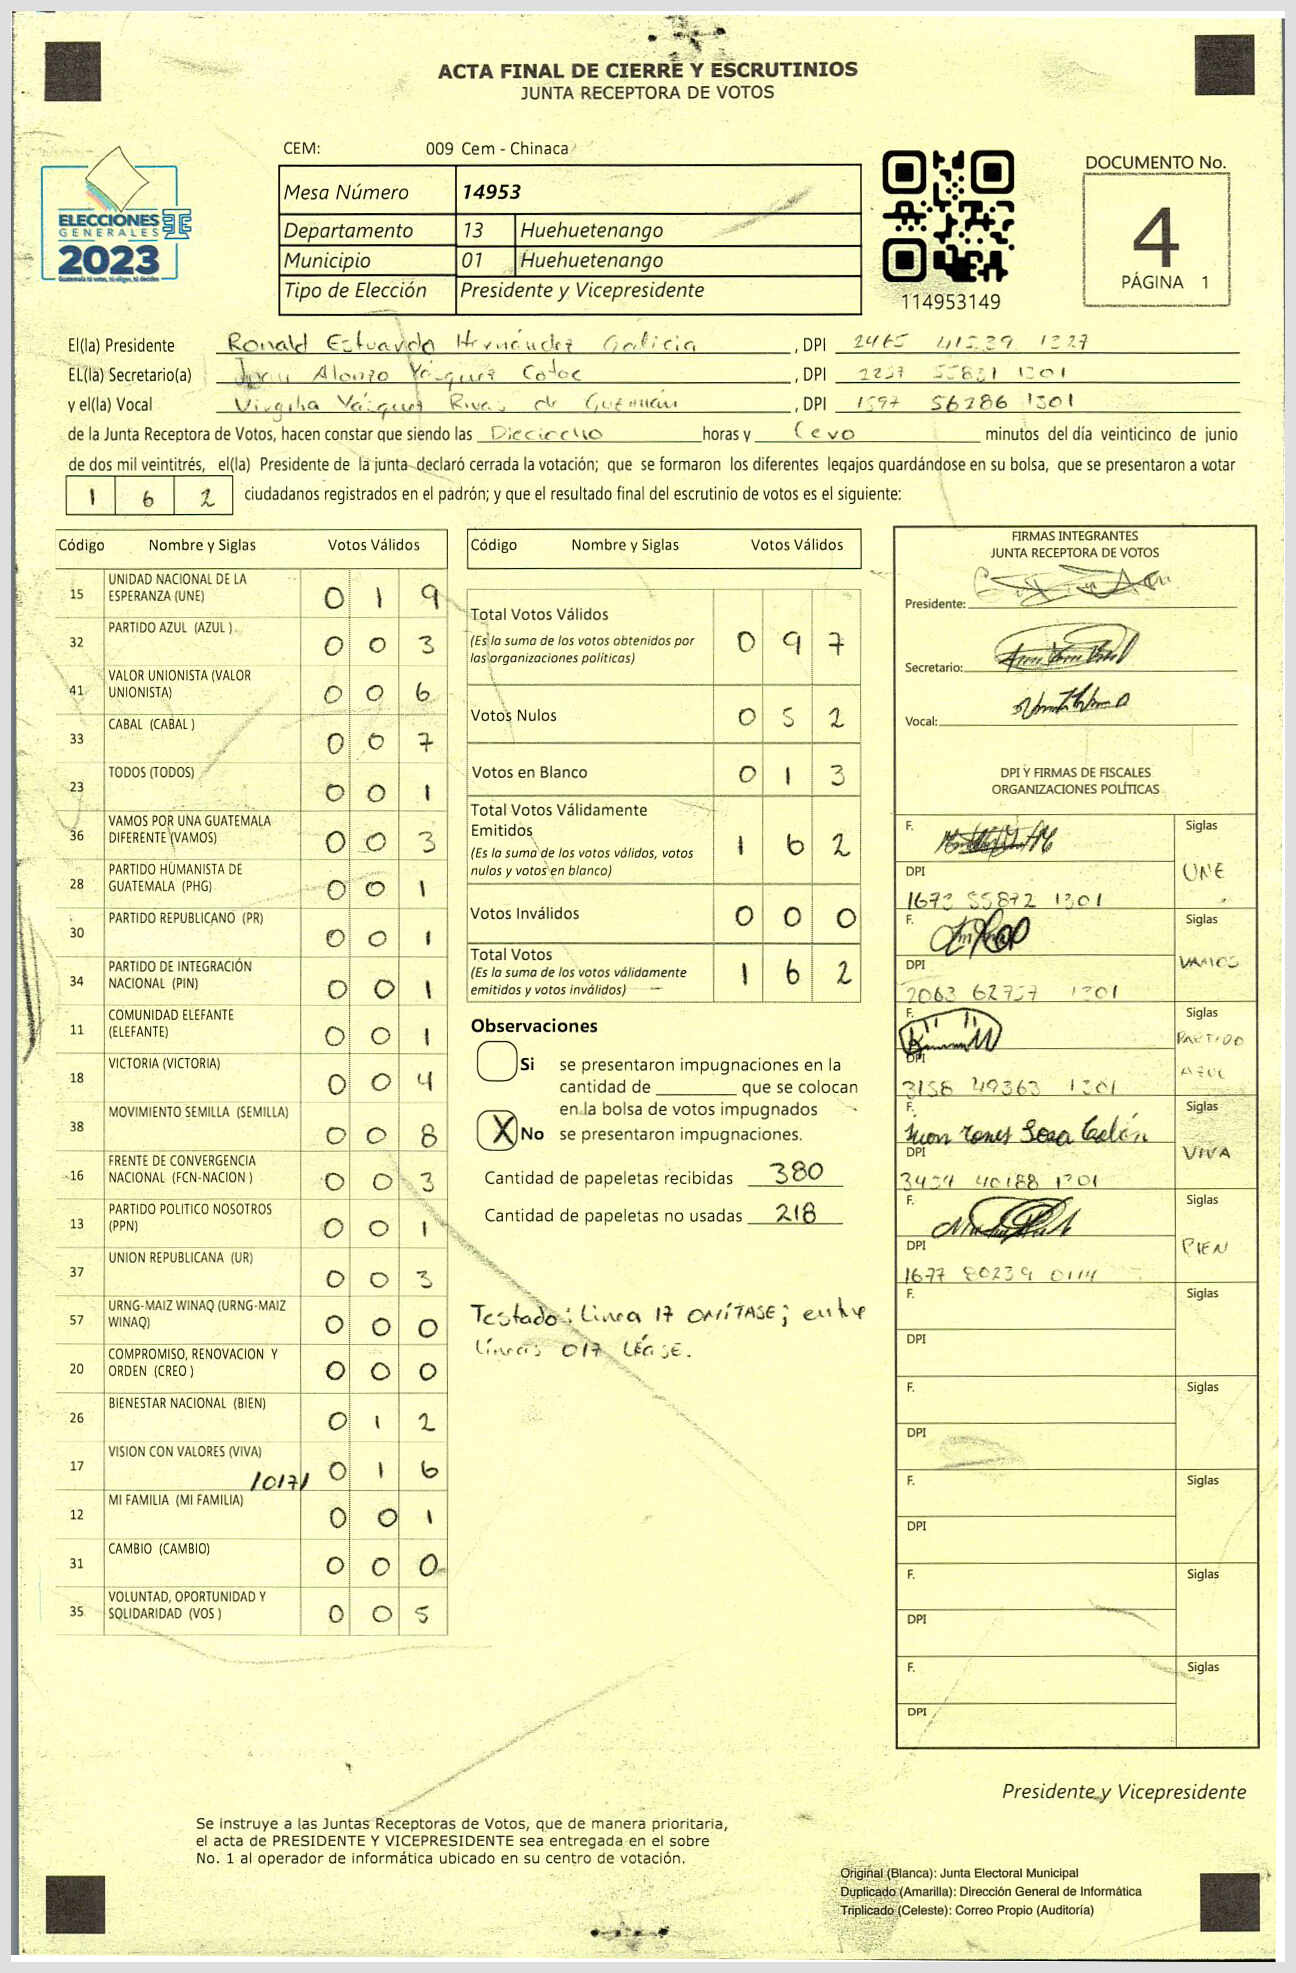 ACTA FINAL DE CIERRE Y ESCRUTINIOS
JUNTA RECEPTORA DE VOTOS
CEM: 009 Cem - Chinaca
ELECCIONES
GENERALES
2023
Mesa Número 14953
Departamento 13 Huehuetenango
Municipio 01 Huehuetenango
Tipo de Elección Presidente y Vicepresidente
114953149
DOCUMENTO No.
4
PÁGINA 1
El(la) Presidente Ronald Estuardo Hernández Galicia, DPI 2465 41539 1327
EL(la) Secretario(a) Alonzo Vásquez Cotoc, DPI 2257 55831 1301
y el(la) Vocal Virgilia Vásquez Rivas de Guzmán, DPI 1597 56286 1301
de la Junta Receptora de Votos, hacen constar que siendo las Dieciocho horas y Cero minutos del día veinticinco de junio
de dos mil veintitrés, el(la) Presidente de la junta declaró cerrada la votación; que se formaron los diferentes legajos guardándose en su bolsa, que se presentaron a votar
1 6 2 ciudadanos registrados en el padrón; y que el resultado final del escrutinio de votos es el siguiente:
Código Nombre y Siglas Votos Válidos
15 UNIDAD NACIONAL DE LA ESPERANZA (UNE) 0 1 9
32 PARTIDO AZUL (AZUL ) 0 0 3
41 VALOR UNIONISTA (VALOR UNIONISTA) 0 0 6
33 CABAL (CABAL ) 0 0 7
23 TODOS (TODOS) 0 0 1
36 VAMOS POR UNA GUATEMALA DIFERENTE (VAMOS) 0 0 3
28 PARTIDO HUMANISTA DE GUATEMALA (PHG) 0 0 1
30 PARTIDO REPUBLICANO (PR) 0 0 1
34 PARTIDO DE INTEGRACIÓN NACIONAL (PIN) 0 0 1
11 COMUNIDAD ELEFANTE (ELEFANTE) 0 0 1
18 VICTORIA (VICTORIA) 0 0 4
38 MOVIMIENTO SEMILLA (SEMILLA) 0 0 8
16 FRENTE DE CONVERGENCIA NACIONAL (FCN-NACION ) 0 0 3
13 PARTIDO POLITICO NOSOTROS (PPN) 0 0 1
37 UNION REPUBLICANA (UR) 0 0 3
57 URNG-MAIZ WINAQ (URNG-MAIZ WINAQ) 0 0 0
20 COMPROMISO, RENOVACION Y ORDEN (CREO ) 0 0 0
26 BIENESTAR NACIONAL (BIEN) 0 1 2
17 VISION CON VALORES (VIVA) /017/ 0 1 6
12 MI FAMILIA (MI FAMILIA) 0 0 1
31 CAMBIO (CAMBIO) 0 0 0
35 VOLUNTAD, OPORTUNIDAD Y SOLIDARIDAD (VOS ) 0 0 5
Código Nombre y Siglas Votos Válidos
Total Votos Válidos 0 9 7
(Es la suma de los votos obtenidos por
las organizaciones politicas)
Votos Nulos 0 5 2
Votos en Blanco 0 1 3
Total Votos Válidamente
Emitidos 1 6 2
(Es la suma de los votos válidos, votos
nulos y votos en blanco)
Votos Inválidos 0 0 0
Total Votos 1 6 2
(Es la suma de los votos válidamente
emitidos y votos inválidos)
Observaciones
Si se presentaron impugnaciones en la
cantidad de ________ que se colocan
en la bolsa de votos impugnados
X No se presentaron impugnaciones.
Cantidad de papeletas recibidas 380
Cantidad de papeletas no usadas 218
Testado: Linea 17 OMÍTASE; entre
líneas 017 LÉASE.
FIRMAS INTEGRANTES
JUNTA RECEPTORA DE VOTOS
Presidente:
Secretario:
Vocal:
DPI Y FIRMAS DE FISCALES
ORGANIZACIONES POLÍTICAS
F. Siglas
DPI UNE
1673 55872 1301
F. Siglas
DPI VAMOS
2063 62757 1301
F. Siglas
DPI PARTIDO AZUL
3158 49363 1301
F. Siglas
DPI VIVA
3454 40188 1301
F. Siglas
DPI BIEN
1677 80239 0114
F. Siglas
DPI
F. Siglas
DPI
F. Siglas
DPI
F. Siglas
DPI
F. Siglas
DPI
Presidente y Vicepresidente
Se instruye a las Juntas Receptoras de Votos, que de manera prioritaria,
el acta de PRESIDENTE Y VICEPRESIDENTE sea entregada en el sobre
No. 1 al operador de informática ubicado en su centro de votación.
Original (Blanca): Junta Electoral Municipal
Duplicado (Amarilla): Dirección General de Informática
Triplicado (Celeste): Correo Propio (Auditoría)